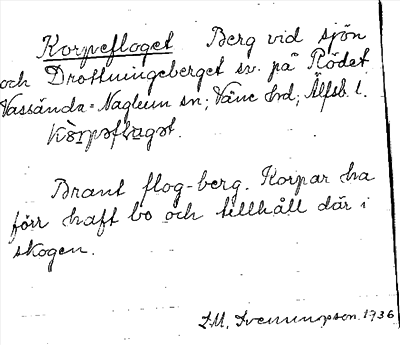 Korpefloget Berg vid sjön
och Drottningeberget sv. på Rödet
Vassända-Naglum sn; Väne hd; Älfsb. l.
Kòrpəflogət.
Brant flog-berg. Korpar ha
förr haft bo och tillhåll där i
skogen.
1936